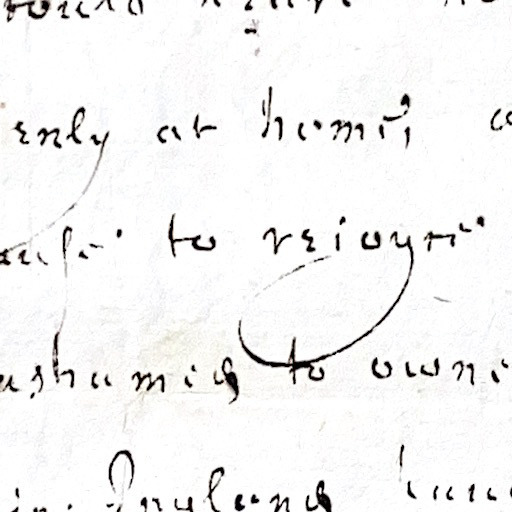 enly at home;
ause to reioyce
ashamed to owne
in England